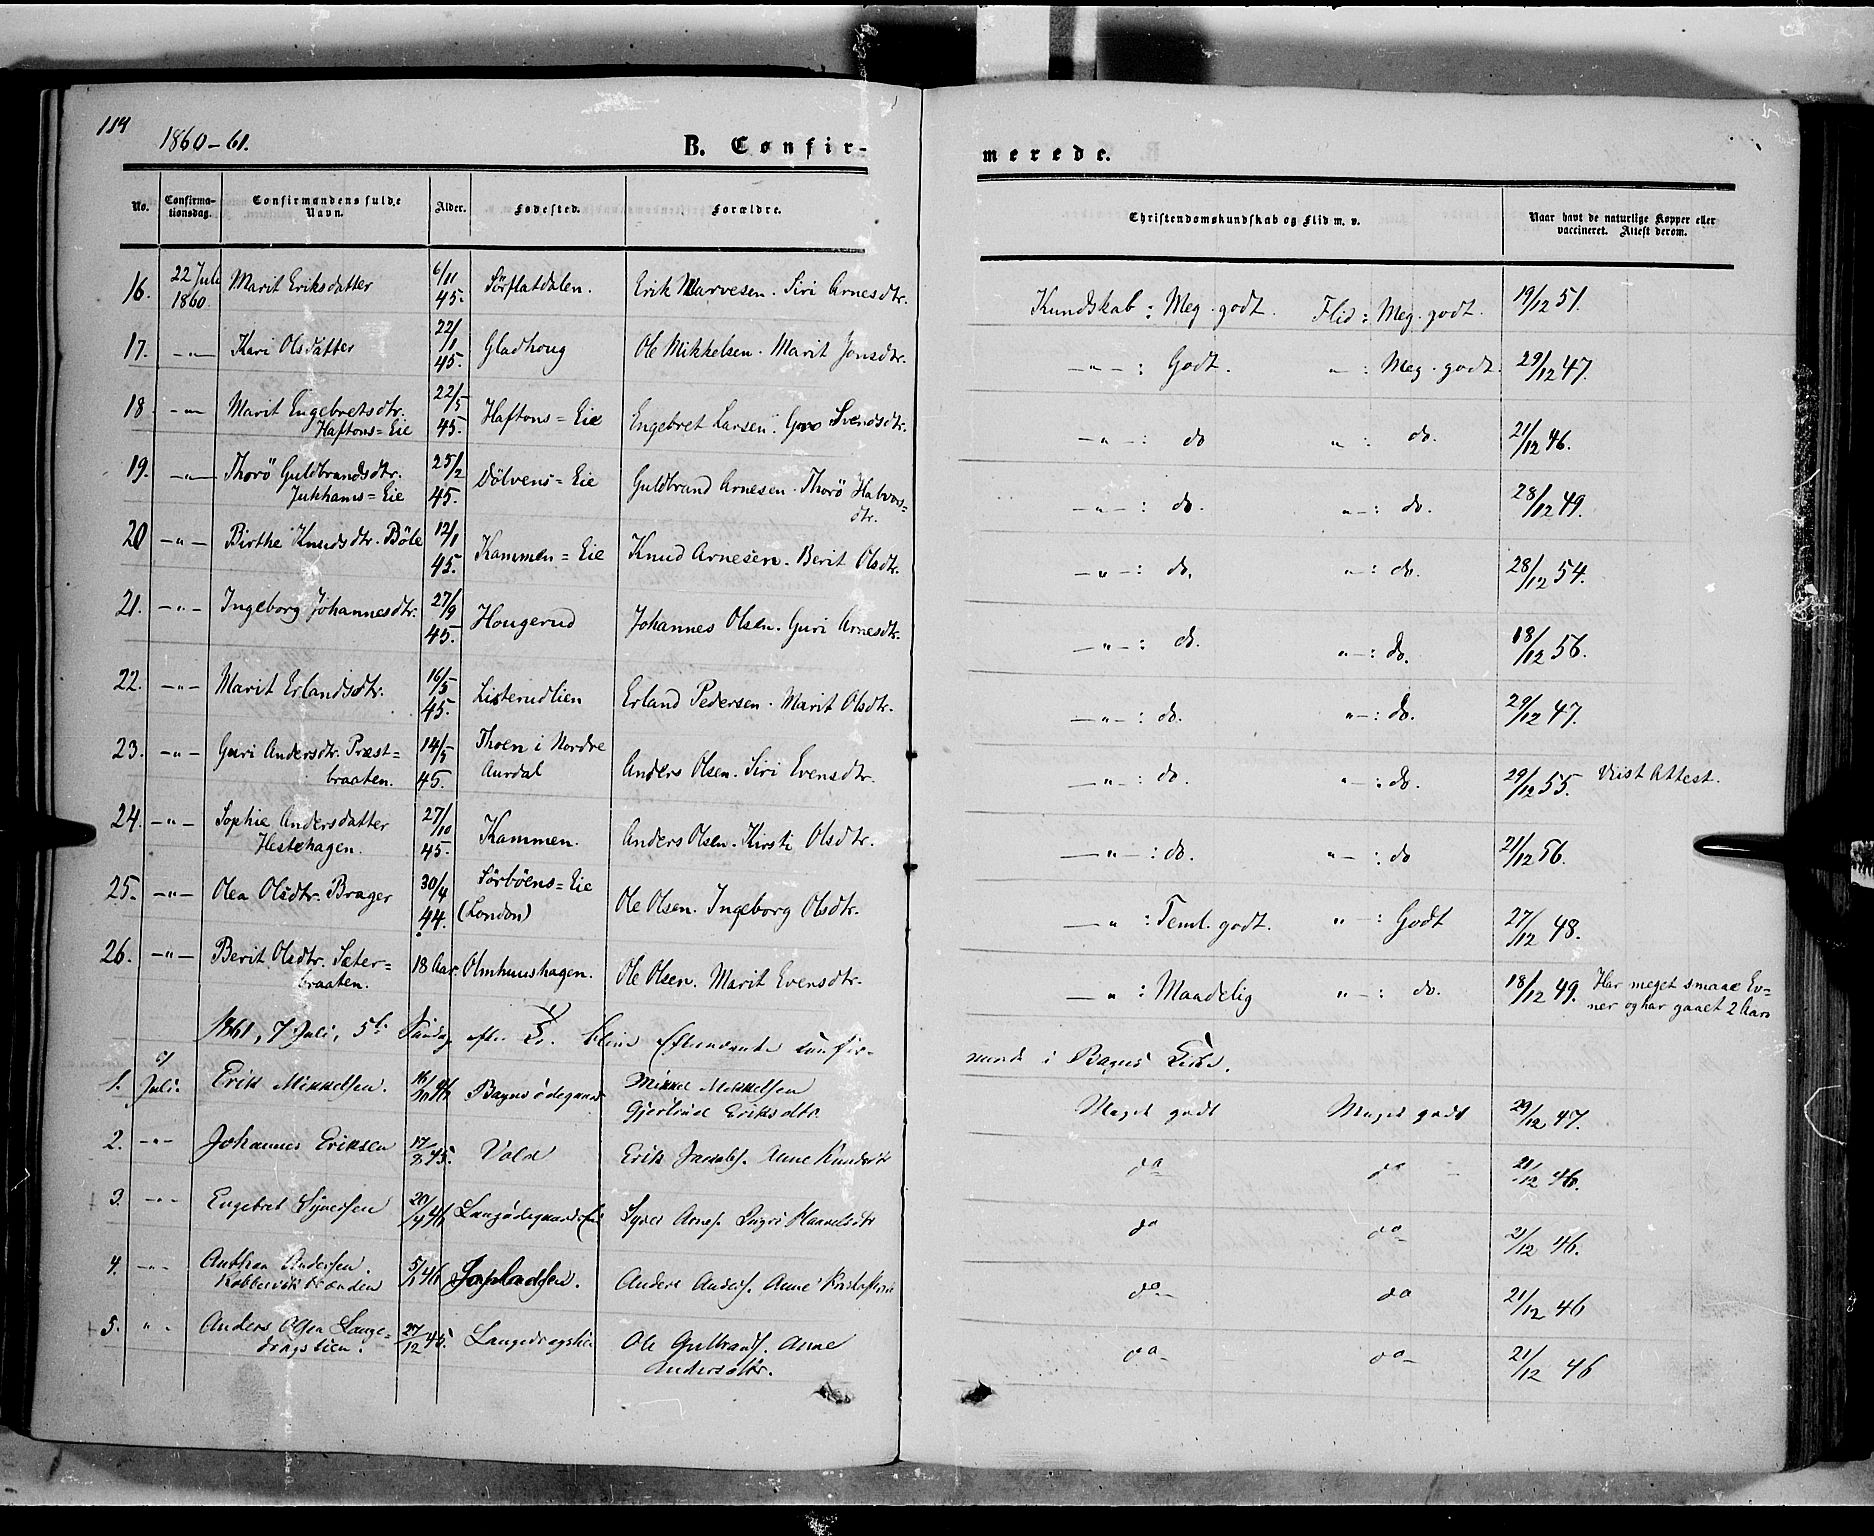 184
1860-61.
B. Confir-
merede.
No. Confirma-tionsdag. Confirmandens fulde Navn. Alder. Fødested. Forældre. Christendomskundskab og Flid m. v. Naar havt de naturlige Kopper eller vaccineret. Attest derom.
16. 22 Juli 1860. Marit Eriksdatter 6/11 45. Sørflatdalen. Erik Marvesen. Siri Arnesdtr. Kundskab: Meg. godt. Flid: Meg. godt. 19/12 51.
17. -"- Kari Olsdatter 22/1 45. Gladhoug Ole Mikkelsen. Marit Jonsdtr. -"-: Godt. ": Meg. godt. 29/12 47.
18 -"- Marit Engebretsdtr. Haftons=Eie 22/5 45. Haftons=Eie Engebret Larsen. Goro Svendsdtr. -"-: do ": do. 21/12 46.
19. -"- Thorö Guldbrandsdtr. Juhhams=Eie 25/2 45. Dölvens=Eie Guldbrand Arnesen. Thorö Halvors=dtr. -"-: do. "-: do. 28/12 49.
20 -"- Birthe Knudsdtr. Böle 12/1 45. Kammen=Eie Knud Arnesen. Berit Olsdtr. -"-: do. "-: do. 28/12 54.
21. -"- Ingeborg Johannesdtr. 27/9 45. Hougerud Johannes Olsen. Guri Arnesdtr. -"-: do. "-: do. 18/12 56.
22. -"- Marit Erlandsdtr. 16/5 45. Listerudlien Erland Pedersen. Marit Olsdtr. -"-: do. "-: do. 29/12 47.
23. -"- Guri Andersdtr. Præst=braaten. 14/5 45. Thoen i Nordre Aurdal Anders Olsen. Siri Evensdtr. -"-: do. "-: do. 29/12 55. Viist Attest.
24. -"- Sophie Andersdatter Hestehagen. 27/10 45. Kammen. Anders Olsen. Kirsti Olsdtr. -"-: do. "-: do 21/12 56.
25. -"- Olea Olsdtr. Brager 30/4 44. Sörböens=Eie (London) Ole Olsen. Ingeborg Olsdtr. -": Teml. godt. "-: Godt 27/12 48.
26. -"- Berit Olsdtr. Sæter=braaten. 18 Aar. Olmhuushagen. Ole Olsen. Marit Evensdtr. -": Maadelig "-: do. 18/12 49. Har meget smaae Ev=ner og har gaaet 2 Aar.
1861, 7 Juli, 5te Söndag efter Tr. bleve Efternævnte confir-
merede i Bagns Kirke.
1. 7 Juli. Erik Mikkelsen. 46 Bagnsödegaard Mikkel Mikkelsen Gjertrud Eriksdtr Meget godt Meget godt 29/12 47.
2. -"- Johannes Eriksen 17/8 45. Vold Erik Jacobs. Anne Knudsdtr do do 21/12 46.
3. -"- Engebret Syversen 20/4 46 Syver Arnes. Ingri do do 21/12 46.
4. -"- Andersen. 5/1 46 Anders Anders. Anne do do 21/12 46
5. " Anders Olsen Lange=dragslien. 27/12 45. Langedragslien Ole Gulbrands. Anne Andersdtr. do do 21/12 46